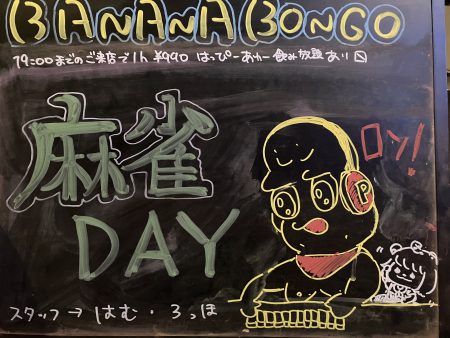 BANANA BONGO
19:00までのご来店で1h ¥990 はっぴーあわー飲み放題あり〼
麻雀
DAY
ロン!
P
スタッフ→はむ・ろっほ